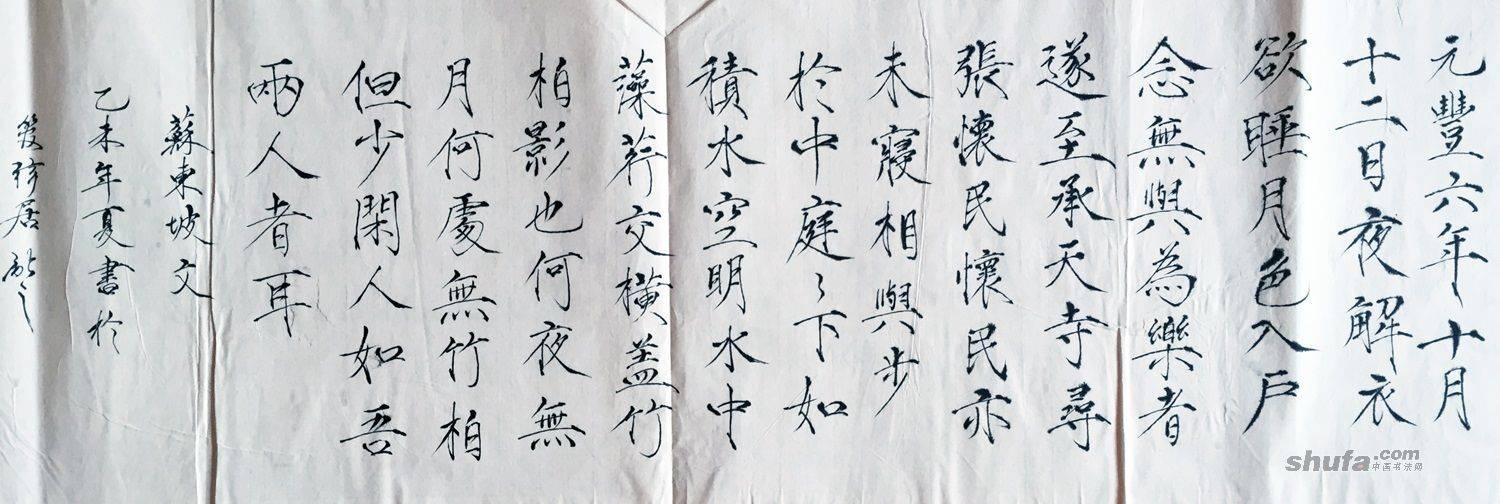 元豐六年十月
十二日夜解衣
欲睡月色入戶
念無與為樂者
遂至承天寺尋
張懷民懷民亦
未寢相與步
於中庭〻下如
積水空明水中
藻荇交橫蓋竹
柏影也何夜無
月何處無竹柏
但少閑人如吾
兩人者耳
蘇東坡文
乙未年夏書於
居
shufa.com
中国书法网